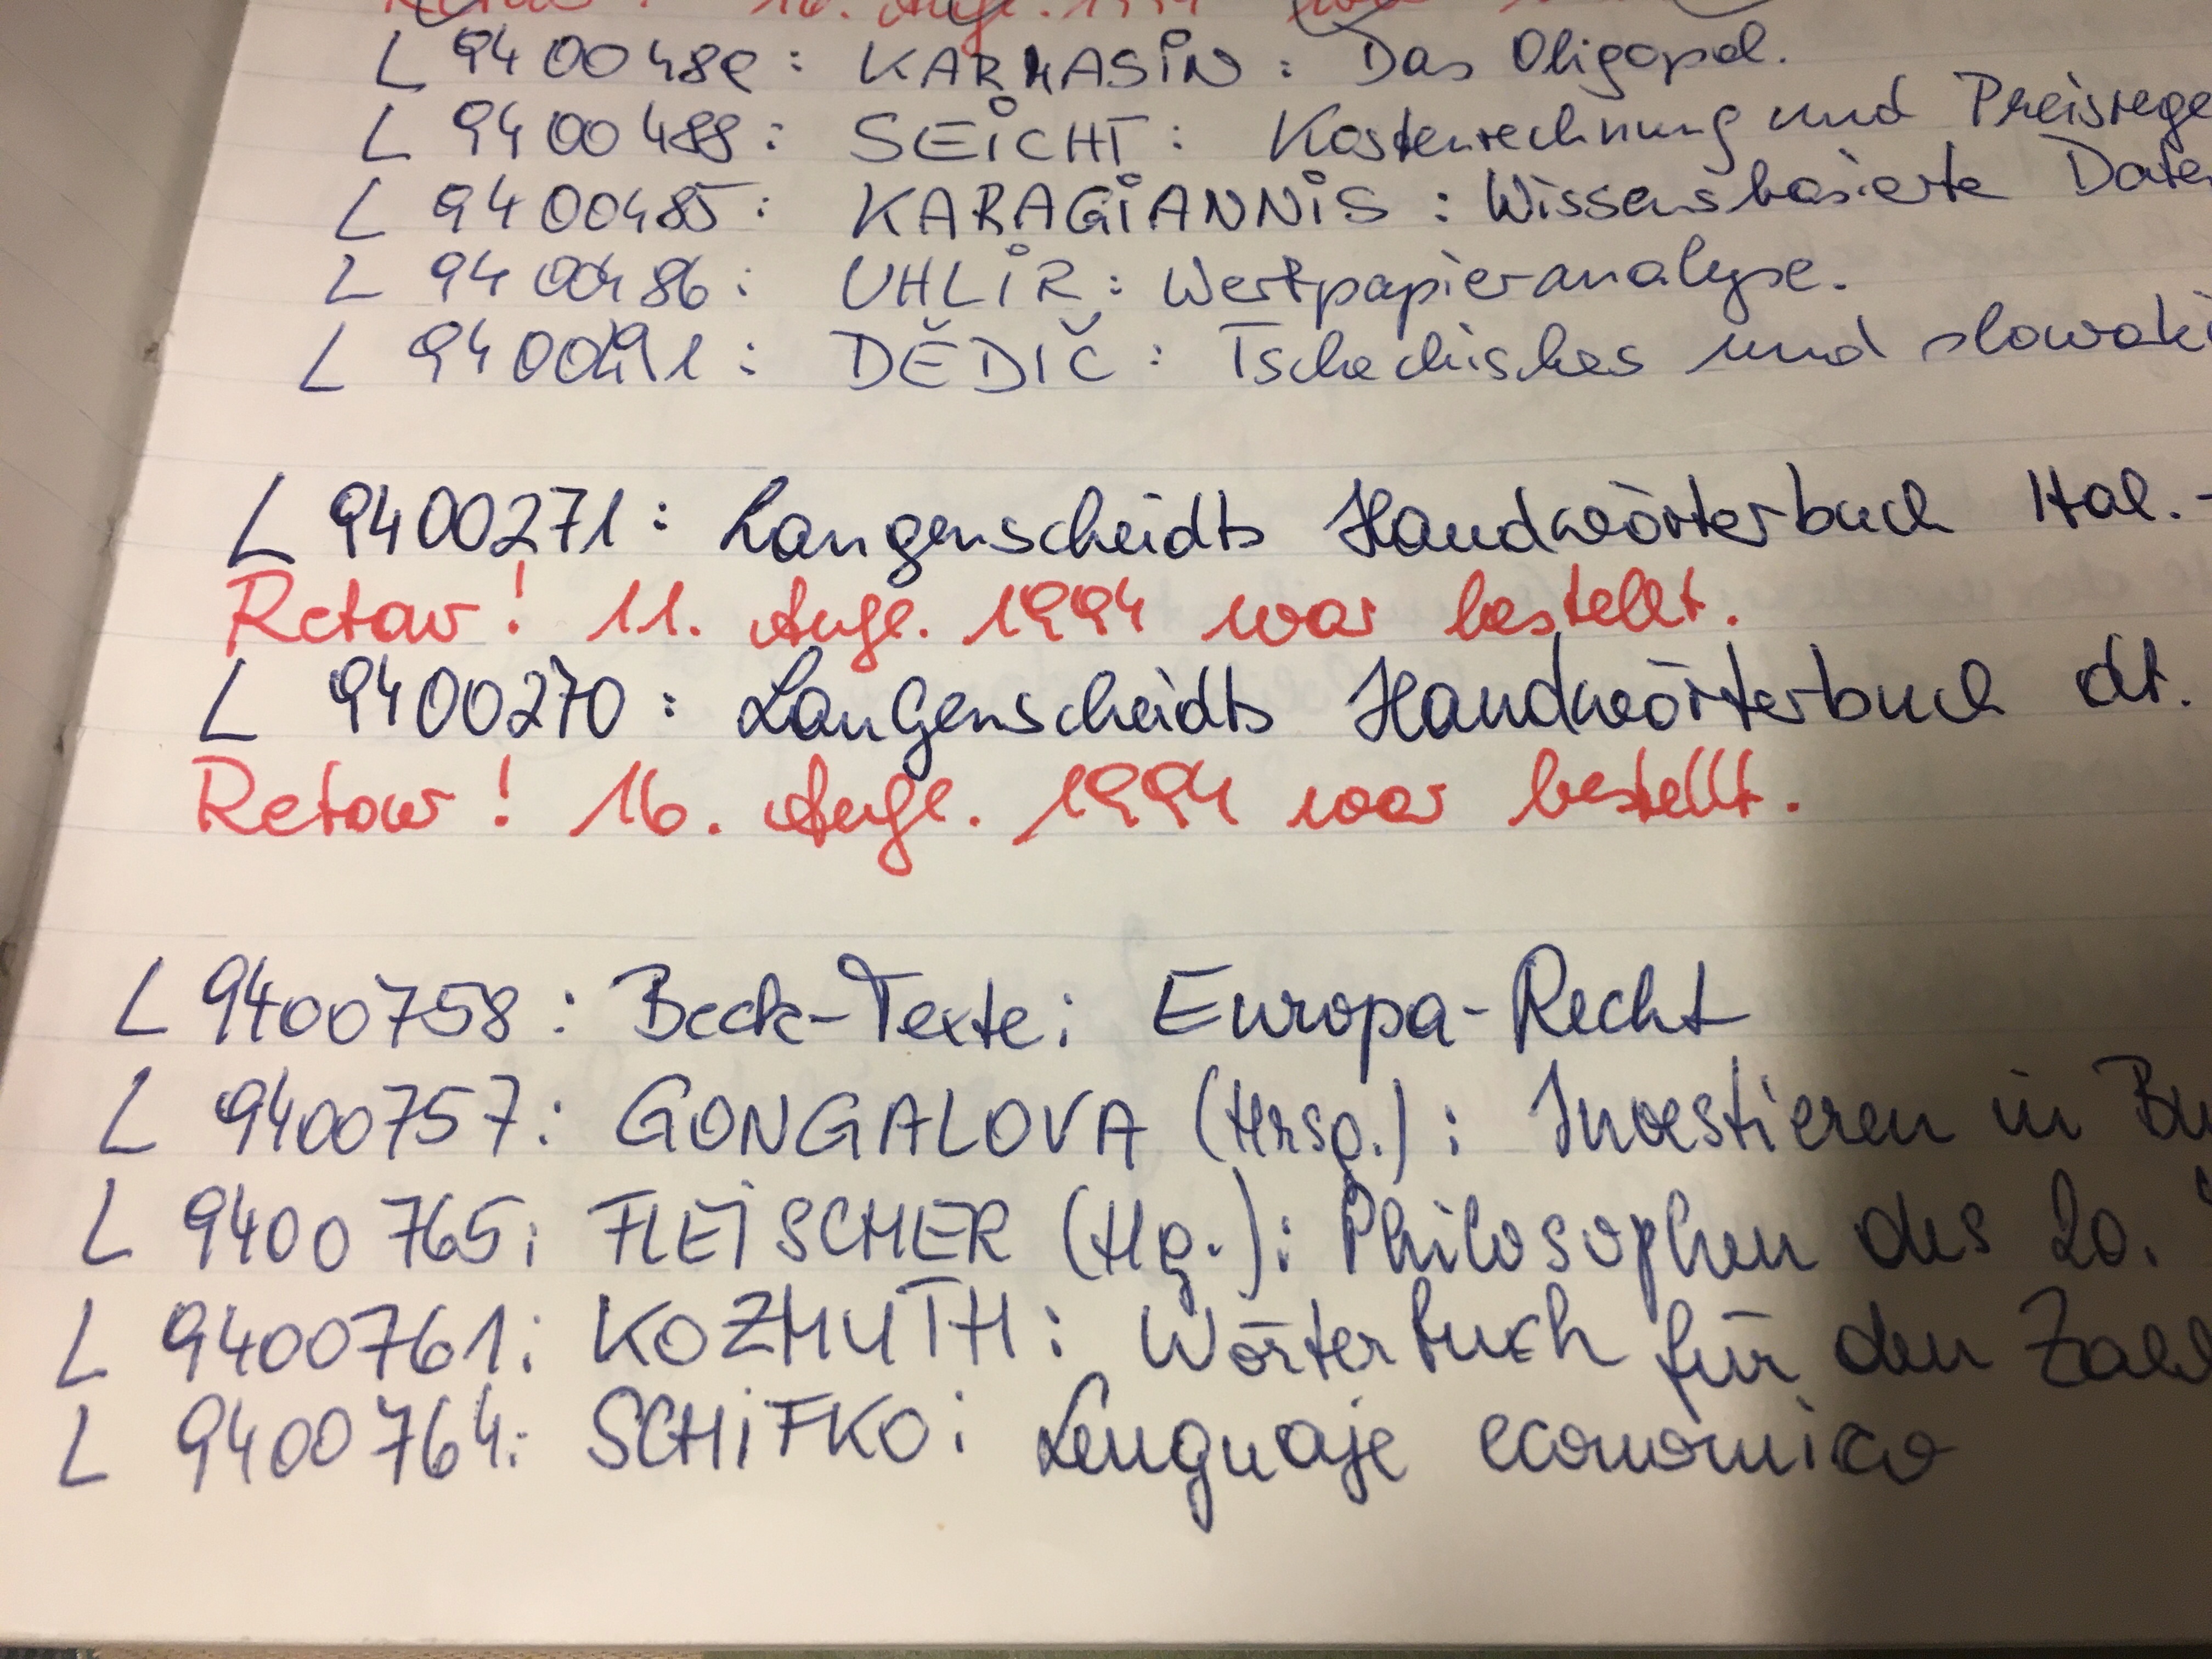 Retour! 16. Aug. 1994 war
L 9400482: KARMASIN: Das Oligopol.
L 9400488: SEICHT: Kostenrechnung und Preisrege
L 9400485: KARAGIANNIS: Wissensbasierte Daten
L 9400486: UHLIR: Wertpapieranalyse.
L 9400491: DĚDIČ: Tschechisches und slowaki
L 9400271: Langenscheidts Handwörterbuch Ital.-
Retour! 11. Aug. 1994 war bestellt.
L 9400270: Langenscheidts Handwörterbuch dt.
Retour! 16. Aug. 1994 war bestellt.
L 9400758: Beck-Texte: Europa-Recht
L 9400757: GONGALOVA (Hrsg.): Investieren in Bu
L 9400765: FLEISCHER (Hg.): Philosophen des 20.
L 9400761: KOZMUTH: Wörterbuch für den Zahl
L 9400764: SCHIFKO: Lenguaje economico